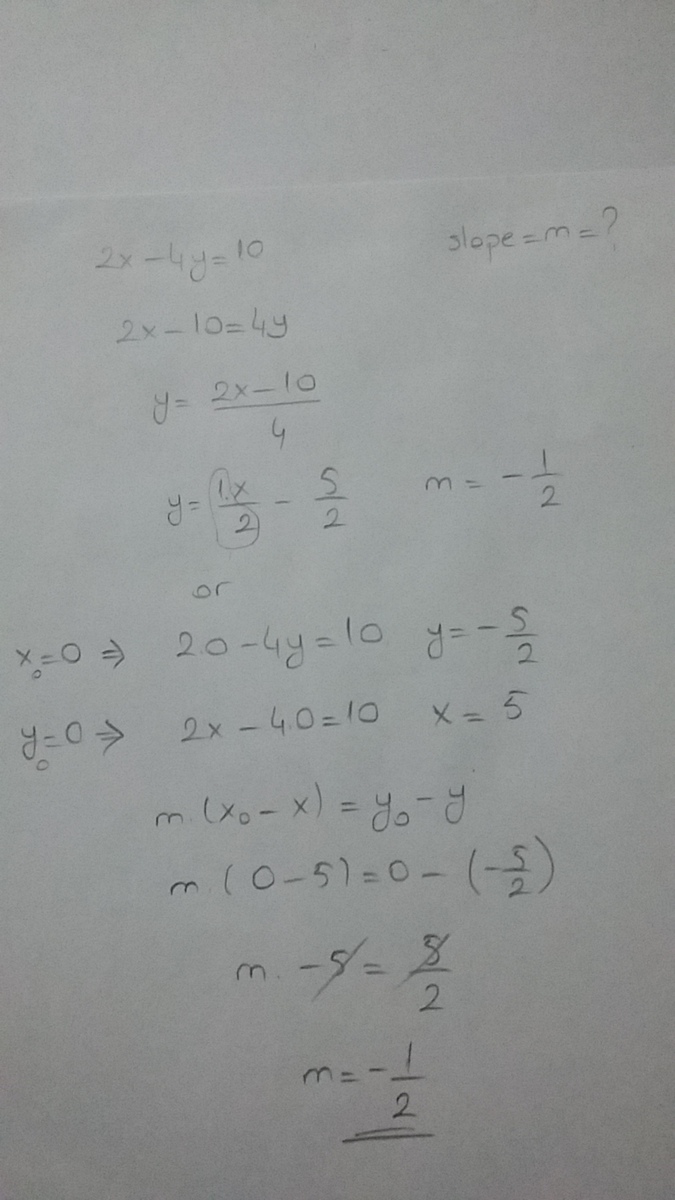 2x-4y=10 slope=m=?
2x-10=4y
y= 2x-10/4
y= 1.x/2 - 5/2 m = -1/2
or
x₀=0 ⇒ 2.0-4y=10 y=-5/2
y₀=0 ⇒ 2x-4.0=10 x= 5
m.(x₀-x)=y₀-y
m.(0-5)=0-(-5/2)
m. -5= 5/2
m=-1/2